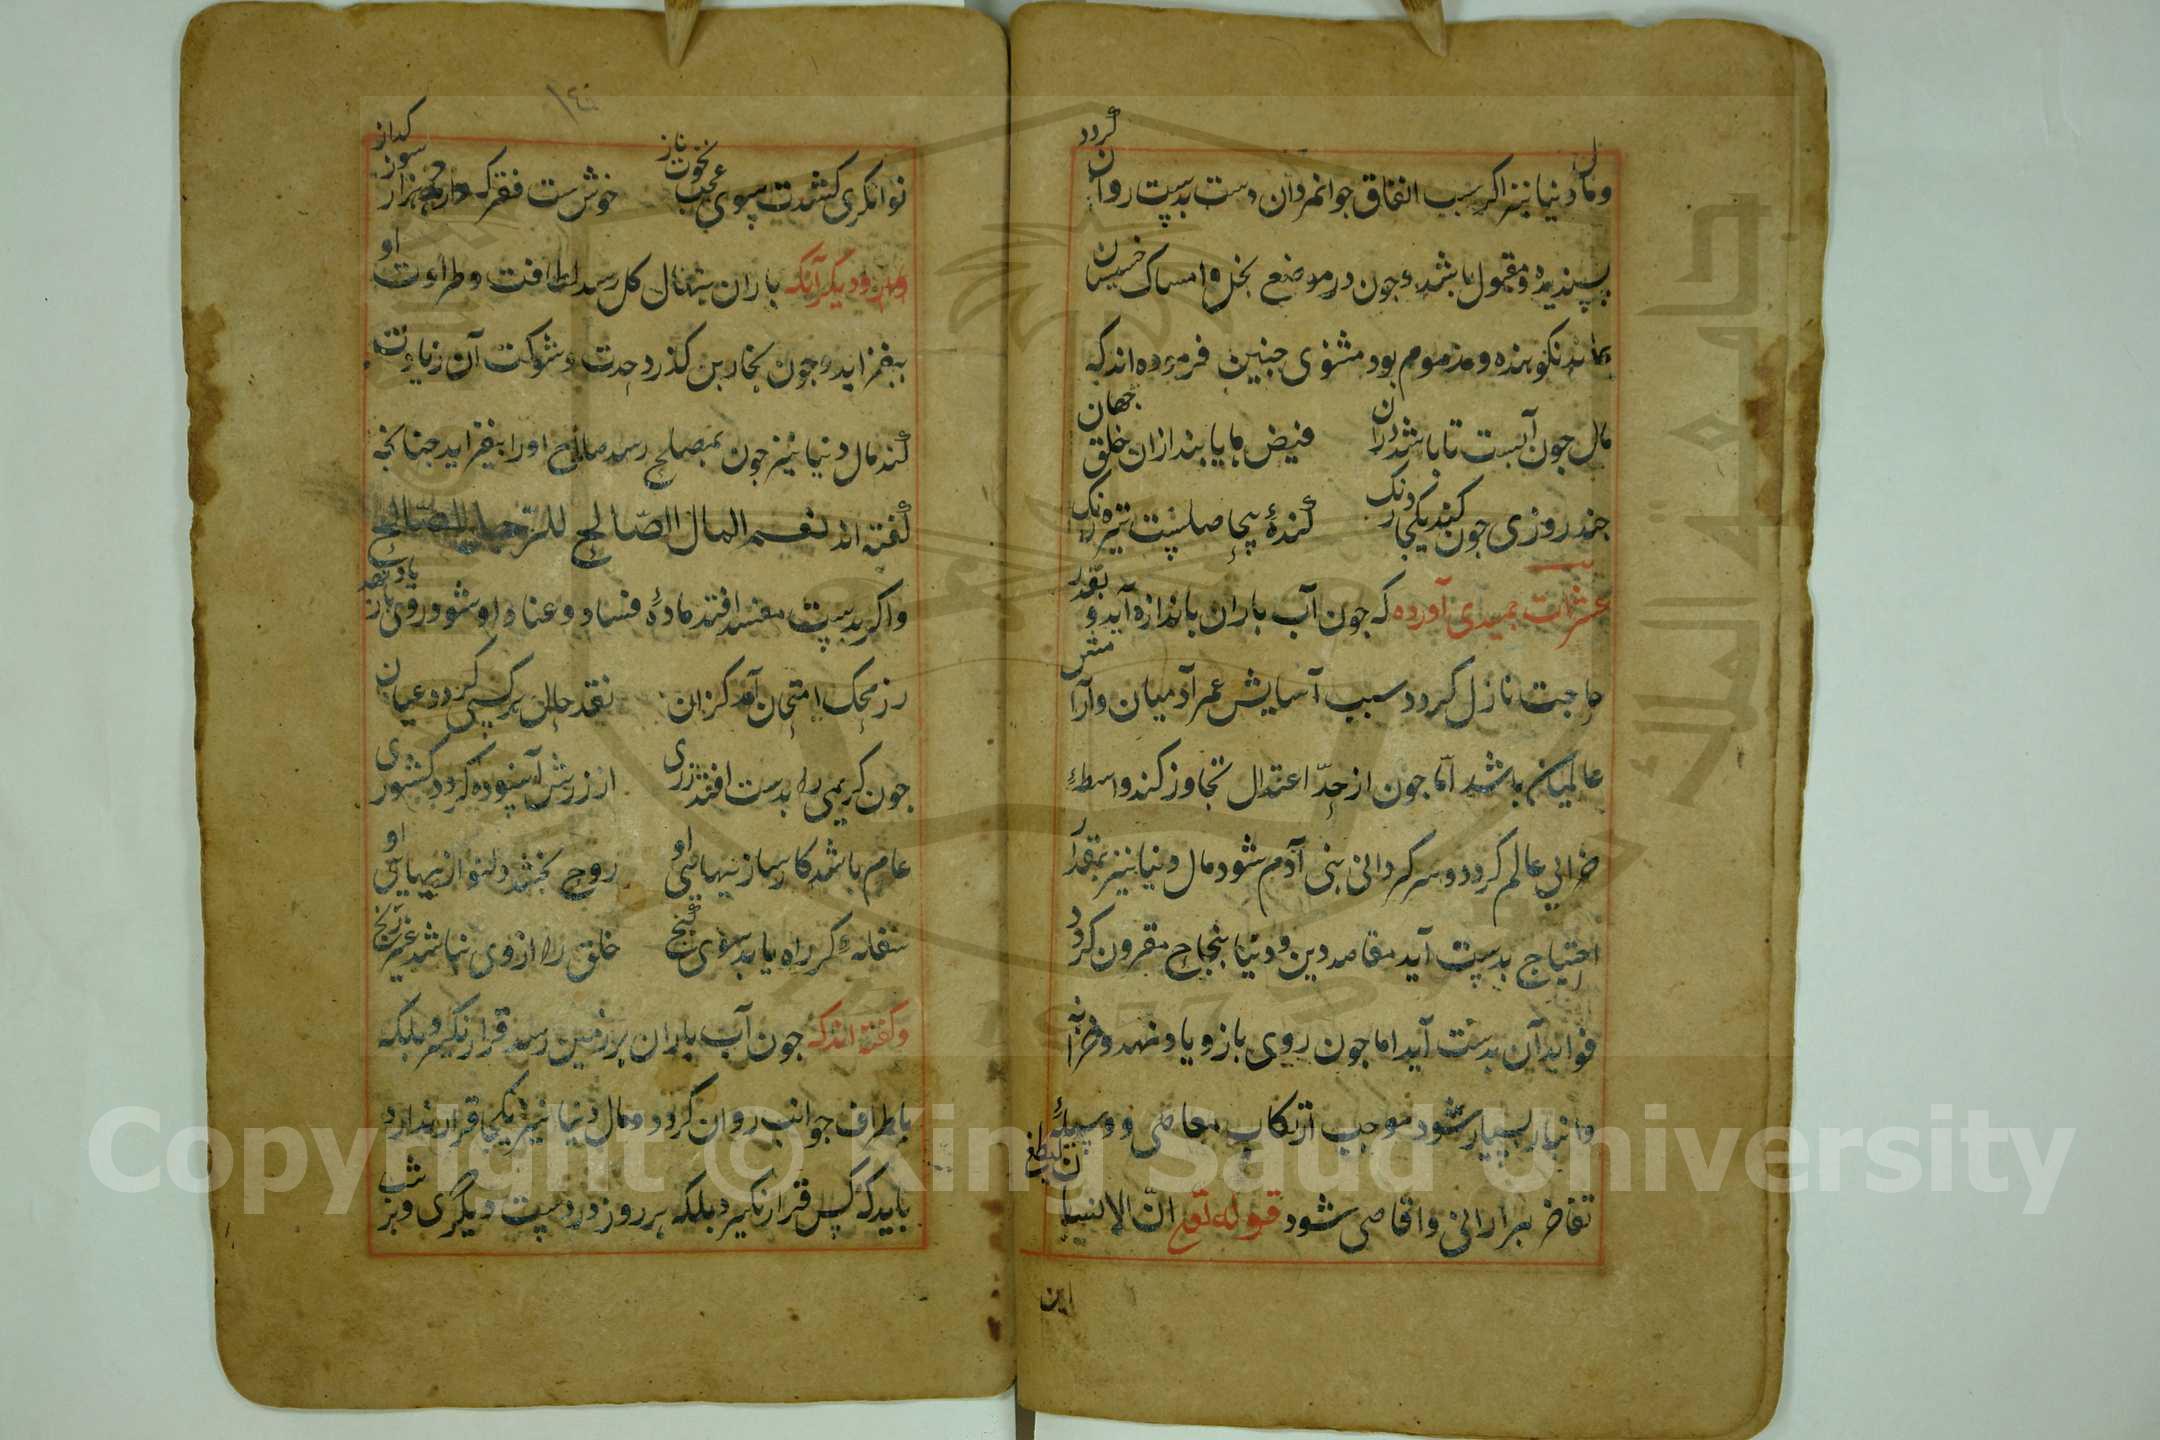 ومال دنیا نیز اکر سبب انفاق جوانمردان دست بدست روان کردد
پسندیده ومقبول باشد وجون در موضع بخل وامساک خسیسان
بماند نکوهیده ومذموم بود مثنوی جنین فرموده اند که
مال جون آبست تا باشد روان فیض ها یابند ازان خلق جهان
جند روزی جون کند یکجا درنک کنده بیحاصلیست تیره رنک
آورده که جون آب باران باندازه آید و بقدر
حاجت نازل کردد سبب آسایش عمر آدمیان وآرامش
عالمیان باشد امّا جون از حدّ اعتدال تجاوز کند واسطهٔ
خرابی عالم کردد وسرکردانی بنی آدم شود مال دنیا نیز بمقدار
احتیاج بدست آید مقاصد دین ودنیا بنجاح مقرون کردد
فواید آن بدست آید اما جون روی بازدیاد نهد وخزانه
وانبار بسیار شود موجب ارتکاب معاصی ووسیلهٔ
شود قوله تع انّ الانسان لیطغی
این
توانکری کشدت سوی عجب نخوت ناز خوش ست فقر که دارد هزار سوز کداز
ودیکر آنکه باران بنهال کل رسد لطافت وطراوت او
بیفزاید وجون بخاربن کذرد حدت وشوکت آن زیادت
کند مال دنیا نیز جون بمصلح رسد صلاح اورا بیفزاید جنانجه
کفته اند نعم المال الصّالح للرّجل الصّالح
واکر بدست مفسد افتد مادهٔ فساد وعناد او شود روی بازدیاد نهد
زر محک امتحان آمد کزان نقد حال هر کسی کردد عیان
جون کریمی را بدست افتد زری از زرش آسوده کردد کشوری
عام باشد کارسازیهای او روح بخشد دلنوازیهای او
سفله کر راه یابد سوی کنج خلق را از وی نباشد غیر رنج
وکفته اند که جون آب باران بر زمین رسد قرار نکیرد بلکه
باطراف جوانب روان کردد ومال دنیا نیز یکجا قرار ندارد
باید که کس قرار نکیرد بلکه هر روز در دست دیکری وهر شب
Copyright © King Saud University